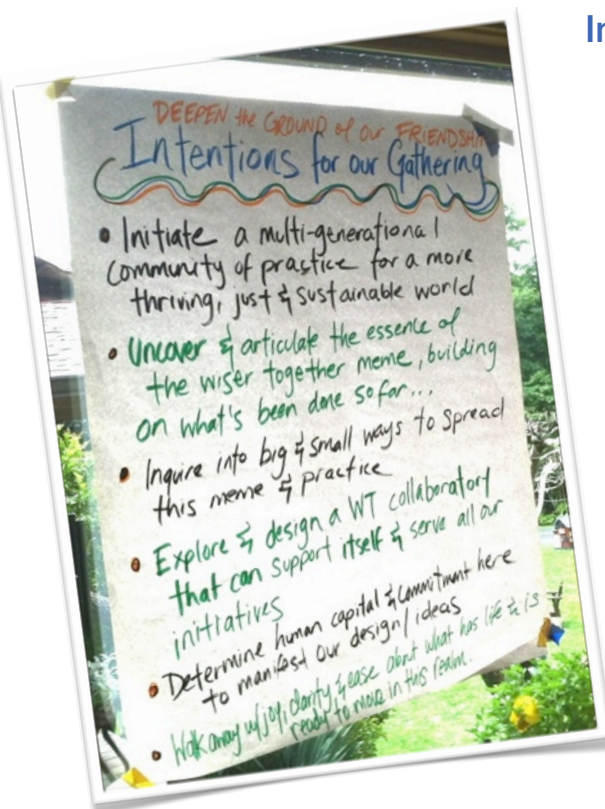 In
DEEPEN the GROUND of our FRIENDSHIP
Intentions for our Gathering
• Initiate a multi-generational
community of practice for a more
thriving, just & sustainable world
• Uncover & articulate the essence of
the wiser together meme, building
on what's been done so far...
• Inquire into big & small ways to spread
this meme & practice
• Explore & design a WT collaboratory
that can support itself & serve all our
initiatives
• Determine human capital & commitment here
to manifest our design/ideas
• Walk away w/joy, clarity & ease about what has life & is
ready to move in this realm.